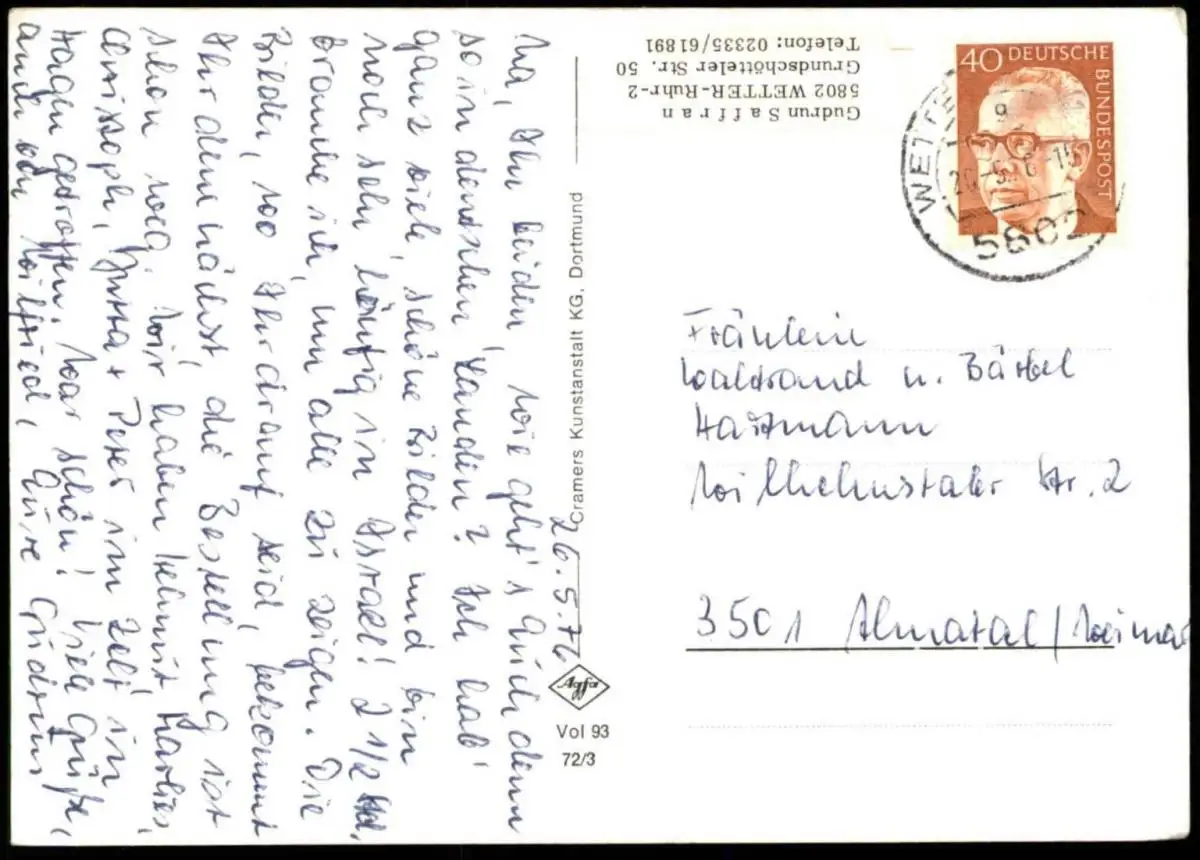 26.5.76
Na, Ihr beiden, wie geht's Euch denn
so in deutschen Landen? Ich hab'
ganz viele, schöne Bilder und bin
noch sehr häufig in Israel! 2 1/2 Std.
brauche ich, um alle zu zeigen. Die
Bilder, wo Ihr drauf seid, bekommt
Ihr demnächst, die Bestellung ist
schon weg. Wir haben Helmut, Marlies,
Christoph, Jutta + Peter im Zelt in
Hagen getroffen. War schön! Viele Grüße,
auch an Wilfried, Eure Gudrun
Cramers Kunstanstalt KG, Dortmund
Agfa
Vol 93
72/3
Gudrun Saffran
5802 WETTER-Ruhr-2
Grundschötteler Str. 50
Telefon: 02335/61891
40 DEUTSCHE
BUNDESPOST
WETTER
5802
Fräulein
Waltraud u. Bärbel
Hartmann
Wilhelmstaler Str. 2
3501 Ahnatal/Weimar